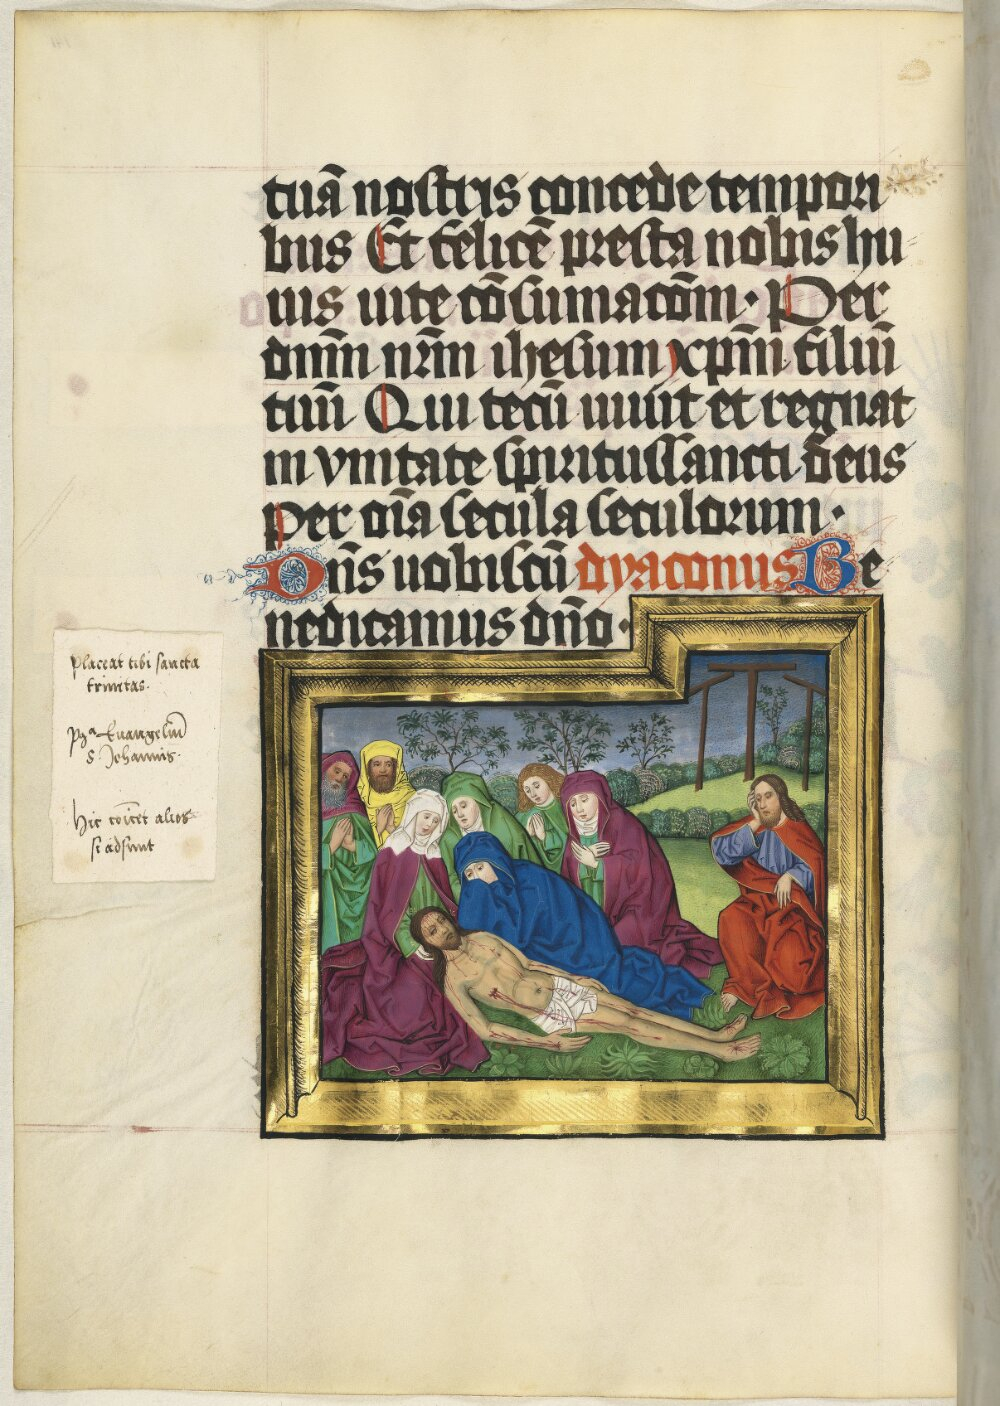 tuā nostris concede tempori
bus Et felicē presta nobis hu
ius uite cōsumacōm · Per
dnm̄ nr̄m ihesum xpm̄ filiū
tuū Qui tecū uiuit et regnat
in vnitate spiritussancti deus
per oīa secula seculorum ·
Dn̄s uobiscū dyaconus Be
nedicamus dn̄o ·
Placeat tibi sancta
trinitas.
Euangeliū
S Johannis.
Hic cōīcet alios
si adsunt